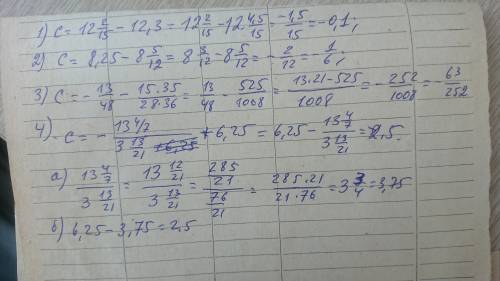 1) C = 12 2/15 - 12,3 = 12 2/15 - 12 4,5/15 = -1,5/15 = -0,1;
2) C = 8,25 - 8 5/12 = 8 3/12 - 8 5/12 = - 2/12 = - 1/6;
3) C = - 13/48 - 15.35/28.36 = 13/48 - 525/1008 = 13.21-525/1008 = - 252/1008 = - 63/252
4) -C = - 13 4/7 / 3 13/21 + 6,25 = 6,25 - 13 4/7 / 3 13/21 = 2,5.
a) 13 4/7 / 3 13/21 = 13 12/21 / 3 13/21 = 285/21 / 76/21 = 285.21/21.76 = 3 3/4 = 3,75
б) 6,25 - 3,75 = 2,5